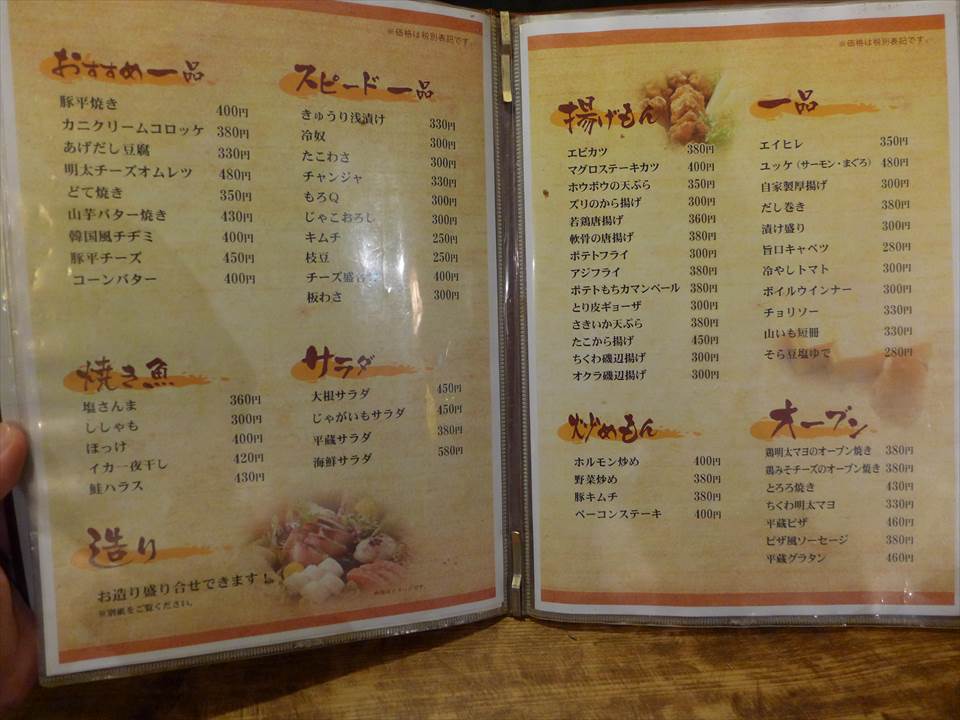 ※価格は税別表記です。
おすすめ一品
豚平焼き 400円
カニクリームコロッケ 380円
あげだし豆腐 330円
明太チーズオムレツ 480円
どて焼き 350円
山芋バター焼き 430円
韓国風チヂミ 400円
豚平チーズ 450円
コーンバター 400円
スピード一品
きゅうり浅漬け 330円
冷奴 300円
たこわさ 300円
チャンジャ 330円
もろQ 300円
じゃこおろし 300円
キムチ 250円
枝豆 250円
チーズ盛合 400円
板わさ 300円
焼き魚
塩さんま 360円
ししゃも 300円
ほっけ 400円
イカ一夜干し 420円
鮭ハラス 430円
サラダ
大根サラダ 450円
じゃがいもサラダ 450円
平蔵サラダ 380円
海鮮サラダ 580円
造り
お造り盛り合せできます!
※別紙をご覧ください。
※価格は税別表記です。
揚げもん
エビカツ 380円
マグロステーキカツ 400円
ホウボウの天ぷら 350円
ズリのから揚げ 300円
若鶏唐揚げ 360円
軟骨の唐揚げ 380円
ポテトフライ 300円
アジフライ 380円
ポテトもちカマンベール 380円
とり皮ギョーザ 300円
さきいか天ぷら 380円
たこから揚げ 450円
ちくわ磯辺揚げ 300円
オクラ磯辺揚げ 300円
一品
エイヒレ 350円
ユッケ(サーモン・まぐろ) 480円
自家製厚揚げ 300円
だし巻き 380円
漬け盛り 300円
旨口キャベツ 280円
冷やしトマト 300円
ボイルウインナー 300円
チョリソー 330円
山いも短冊 330円
そら豆塩ゆで 280円
炒めもん
ホルモン炒め 400円
野菜炒め 380円
豚キムチ 380円
ベーコンステーキ 400円
オーブン
鶏明太マヨのオーブン焼き 380円
鶏みそチーズのオーブン焼き 380円
とろろ焼き 430円
ちくわ明太マヨ 330円
平蔵ピザ 460円
ピザ風ソーセージ 380円
平蔵グラタン 460円